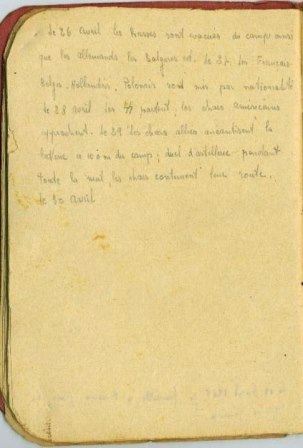 le 26 avril les Russes sont évacués du camp ainsi
que les Allemands les Bulgares ect. le 27. les Français
Belges. Hollandais, Polonais sont mis par nationalité
le 28 avril les SS partent, les chars américains
approchent. le 29 les chars alliés anéantissent la
à 100 m du camp, duel d'artillerie pendant
toute la nuit, les chars continuent leur route.
le 30 avril